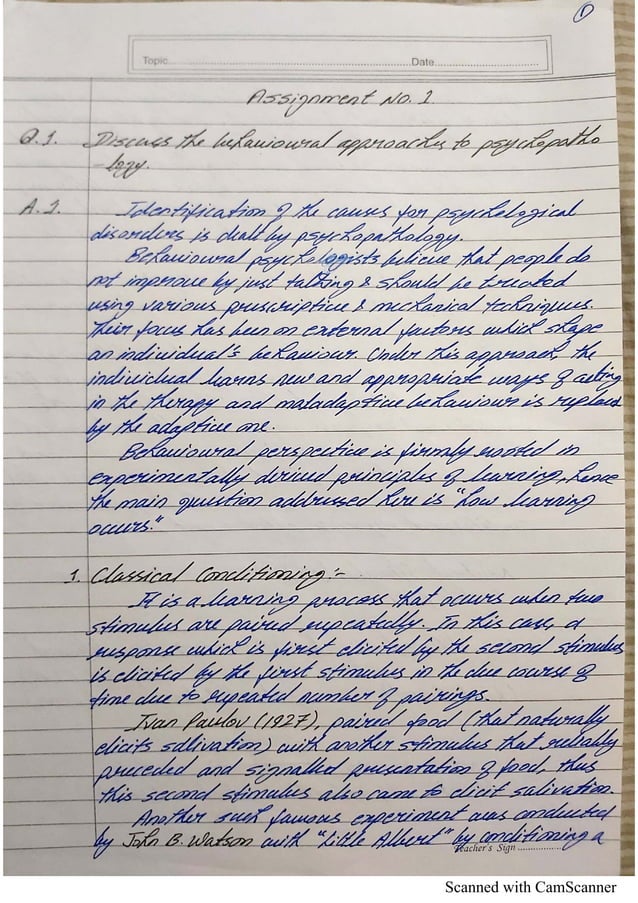 1
Topic Date
Assignment No. 1
Q.1. Discuss the behavioural approaches to psychopatho
-logy.
A.1. Identification of the causes for psychological
disorders is dealt by psychopathology.
Behavioural psychologists believe that people do
not improve by just talking & should be treated
using various prescriptive & mechanical techniques.
Their focus has been on external factors which shape
an individual's behaviour. Under this approach, the
individual learns new and appropriate ways of acting
in the therapy and maladaptive behaviour is replaced
by the adaptive one.
Behavioural perspective is firmly rooted in
experimentally derived principles of learning, hence
the main question addressed here is "how learning
occurs."
1. Classical Conditioning:-
It is a learning process that occurs when two
stimulus are paired repeatedly. In this case, a
response which is first elicited by the second stimulus
is elicited by the first stimulus in the due course of
time due to repeated number of pairings.
Ivan Pavlov (1927), paired food (that naturally
elicits salivation) with another stimulus that reliably
preceded and signalled presentation of food, thus
this second stimulus also came to elicit salivation.
Another such famous experiment was conducted
by John B. Watson with "Little Albert" by conditioning a
Teacher's Sign
Scanned with CamScanner